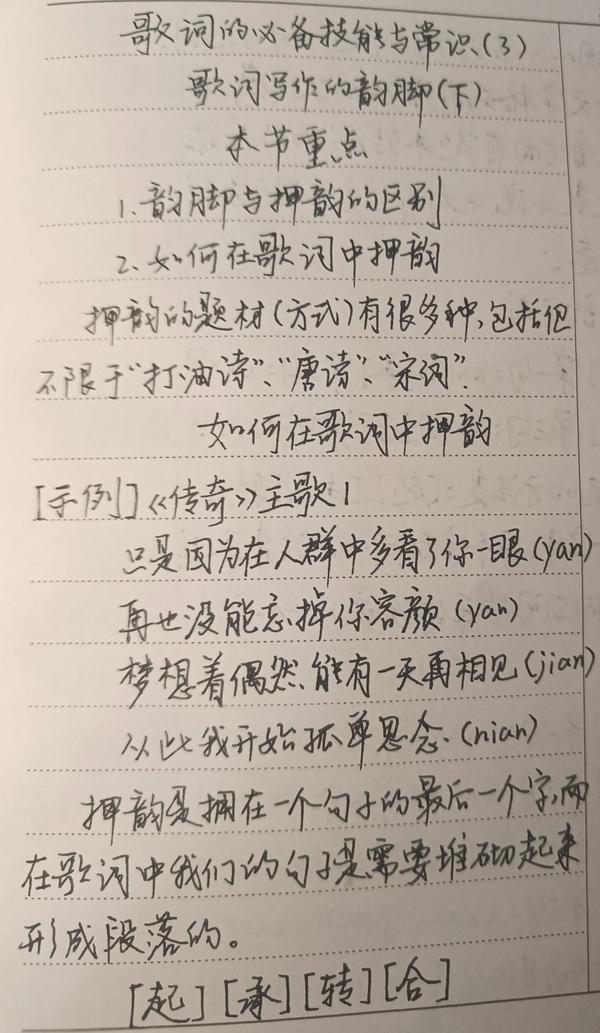 歌词的必备技能与常识(3)
歌词写作的韵脚(下)
本节重点
1.韵脚与押韵的区别
2.如何在歌词中押韵
押韵的题材(方式)有很多种,包括但
不限于“打油诗”、“唐诗”、“宋词”.
如何在歌词中押韵
[示例]《传奇》主歌1
只是因为在人群中多看了你一眼(yan)
再也没能忘掉你容颜(yan)
梦想着偶然能有一天再相见(jian)
从此我开始孤单思念.(nian)
押韵是押在一个句子的最后一个字,而
在歌词中我们的句子是需要堆砌起来
形成段落的。
[起][承][转][合]